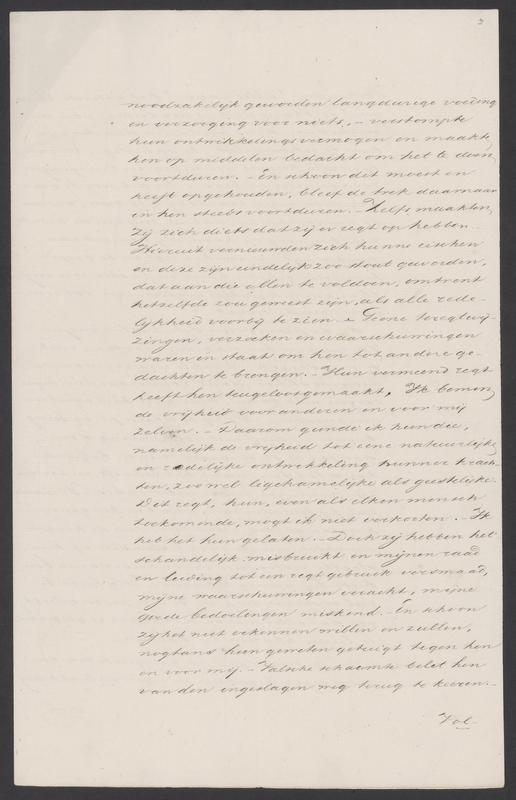 2
noodzakelijk geworden langdurige voeding
en verzorging voor niets, – verstompte
hun ontwikkelingsvermogen en maakte
hen op middelen bedacht om het te doen
voortduren. – En schoon dit moest en
heeft opgehouden, bleef de trek daarnaar
in hen steeds voortduren. – Zelfs maakten
zij zich diets dat zij er regt op hebben.
Hieruit vernieuwden zich hunne eischen
en deze zijn eindelijk zoo stout geworden,
dat aan die allen te voldoen, omtrent
hetzelfde zou geweest zijn, als alle rede-
lijkheid voorbij te zien. – Geene teregtwij-
zingen, verzoeken en waarschuwingen
waren in staat om hen tot andere ge-
dachten te brengen. – Hun vermeend regt
heeft hen teugelloos gemaakt. Ik bemin
de vrijheid voor anderen en voor mij
zelven. – Daarom gunde ik hun die,
namelijk de vrijheid tot eene natuurlijke
en redelijke ontwikkeling hunner krach-
ten, zoo wel ligchamelijke als geestelijke.
Dit regt, hun, even als elken mensch
toekomende, mogt ik niet verkorten. – Ik
heb het hun gelaten. – Doch zij hebben het
schandelijk misbruikt en mijnen raad
en leiding tot een regt gebruik versmaad,
mijne waarschuwingen veracht, mijne
goede bedoelingen miskend. – En schoon
zij het niet erkennen willen en zullen,
nogtans hun geweten getuigt tegen hen
en voor mij. – Valsche schaamte belet hen
van den ingeslagen weg terug te keeren. –
Vol-